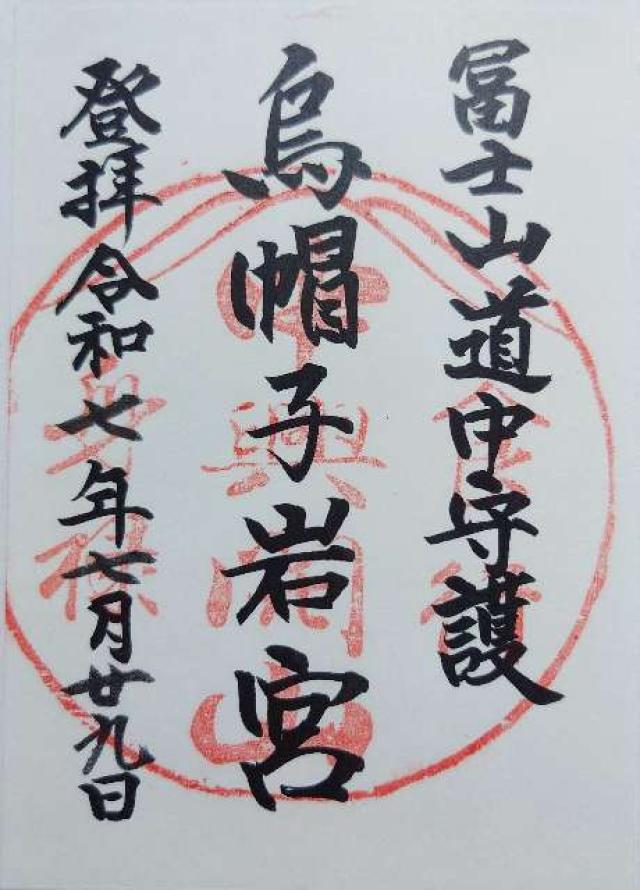 冨士山道中守護
烏帽子岩宮
登拝令和七年七月廿九日
中興開山